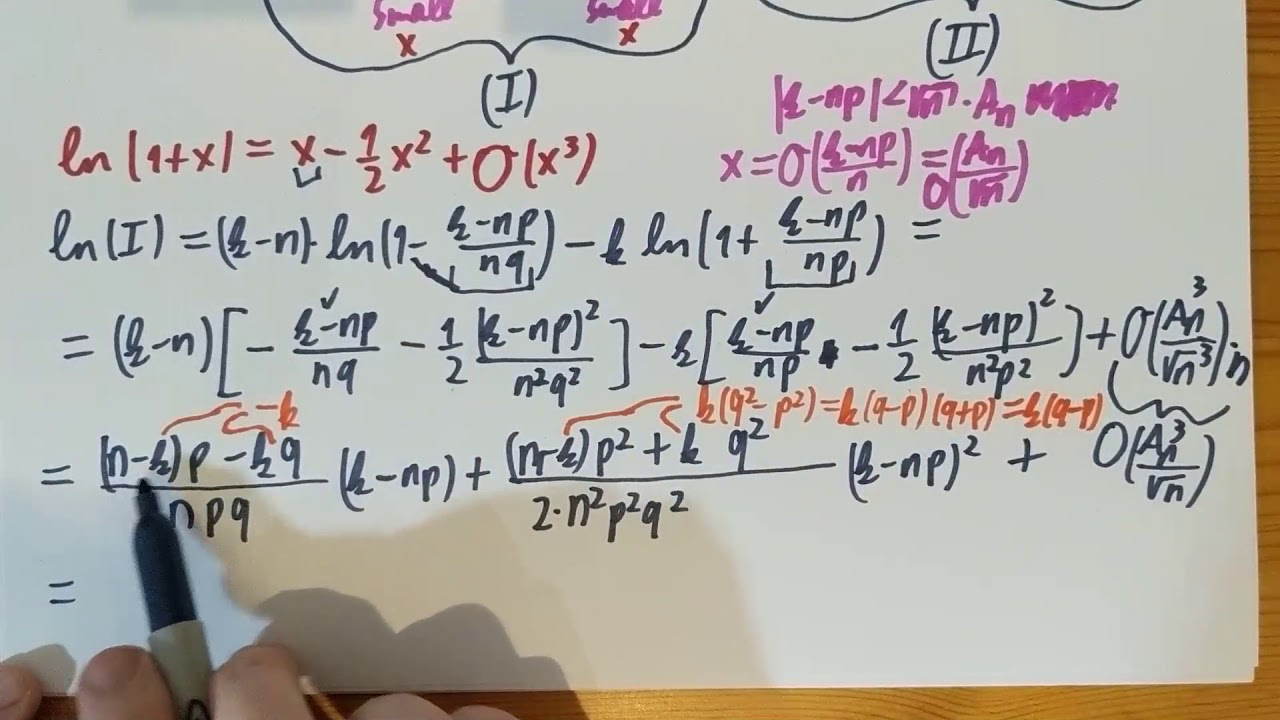 small small
x x
(I)
(II)
|k-np| < √n · Aₙ
ln(1+x) = x - 1/2 x² + O(x³)
x = O((k-np)/n) = O(Aₙ/√n)
ln(I) = (k-n) · ln(1 - (k-np)/(nq)) - k ln(1 + (k-np)/(np)) =
= (k-n) [ - (k-np)/(nq) - 1/2 (k-np)²/(n²q²) ] - k [ (k-np)/(np) - 1/2 (k-np)²/(n²p²) ] + O(Aₙ³/√n³) · n
-k k(q²-p²) = k(q-p)(q+p) = k(q-p)
= ((n-k)p - kq)/(npq) (k-np) + ((n-k)p² + k q²)/(2·n²p²q²) (k-np)² + O(Aₙ³/√n)
=